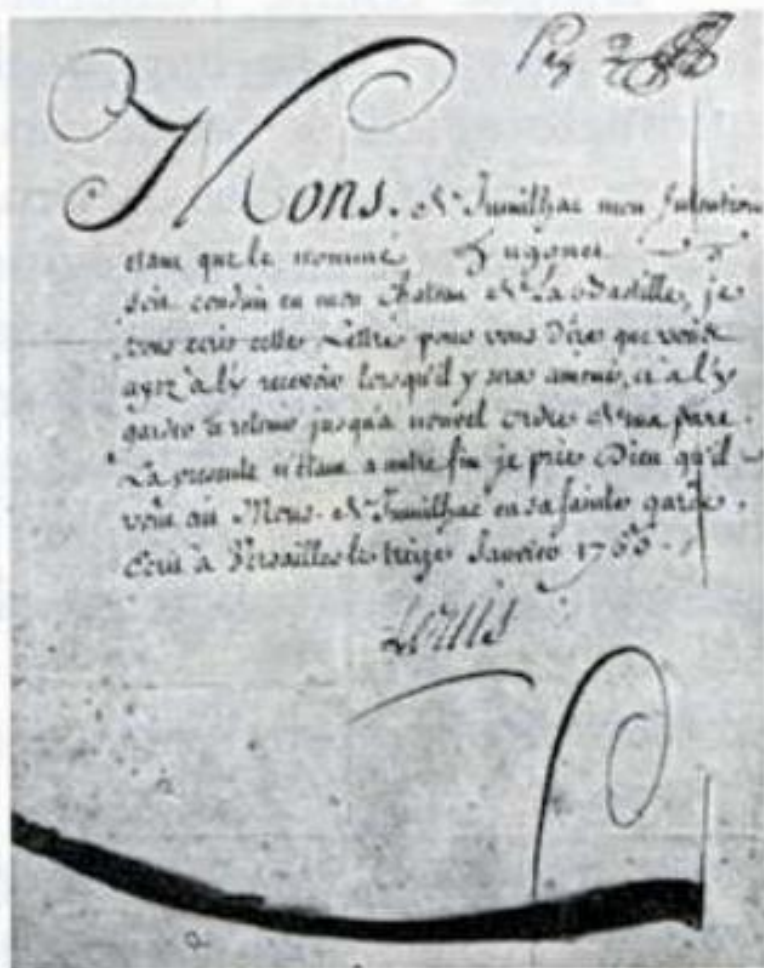 Mons. de Jumilhac mon Intention
etant que le nommé Hugonet
soit conduit en mon Chateau de La Bastille, je
vous ecris cette Lettre pour vous dire que vous
ayez a l'y recevoir lorsqu'il y sera amené, et a l'y
garder et retenir jusqu'a nouvel Ordre de ma part.
La presente n'etant a autre fin je prie Dieu qu'il
vous ait Mons. de Jumilhac en sa sainte garde.
Ecrit à Versailles le treize Janvier 1765.
Louis